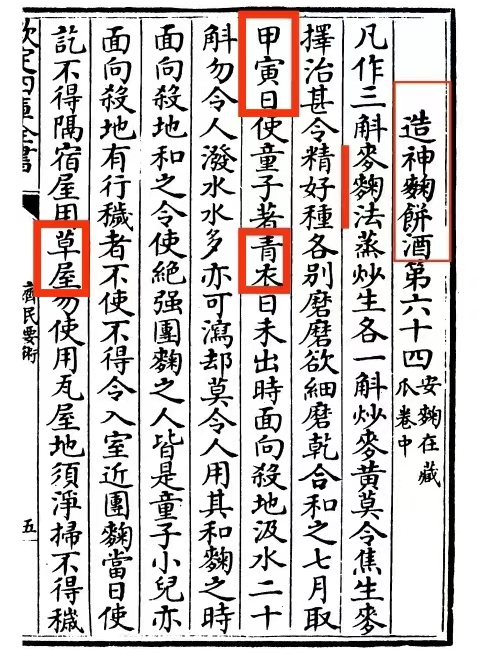 造神麴餅酒第六十四
安麴在藏
瓜卷中
凡作三斛麥麴法蒸炒生各一斛炒麥黃莫令焦生麥
擇治甚令精好種各別磨磨欲細磨乾合和之七月取
甲寅日使童子著青衣日未出時面向殺地汲水二十
斛勿令人潑水水多亦可瀉却莫令人用其和麴之時
面向殺地和之令使絕强團麴之人皆是童子小兒亦
面向殺地有行穢者不使不得令入室近團麴當日使
訖不得隔宿屋用草屋勿使用瓦屋地須淨掃不得穢
欽定四庫全書
齊民要術
五